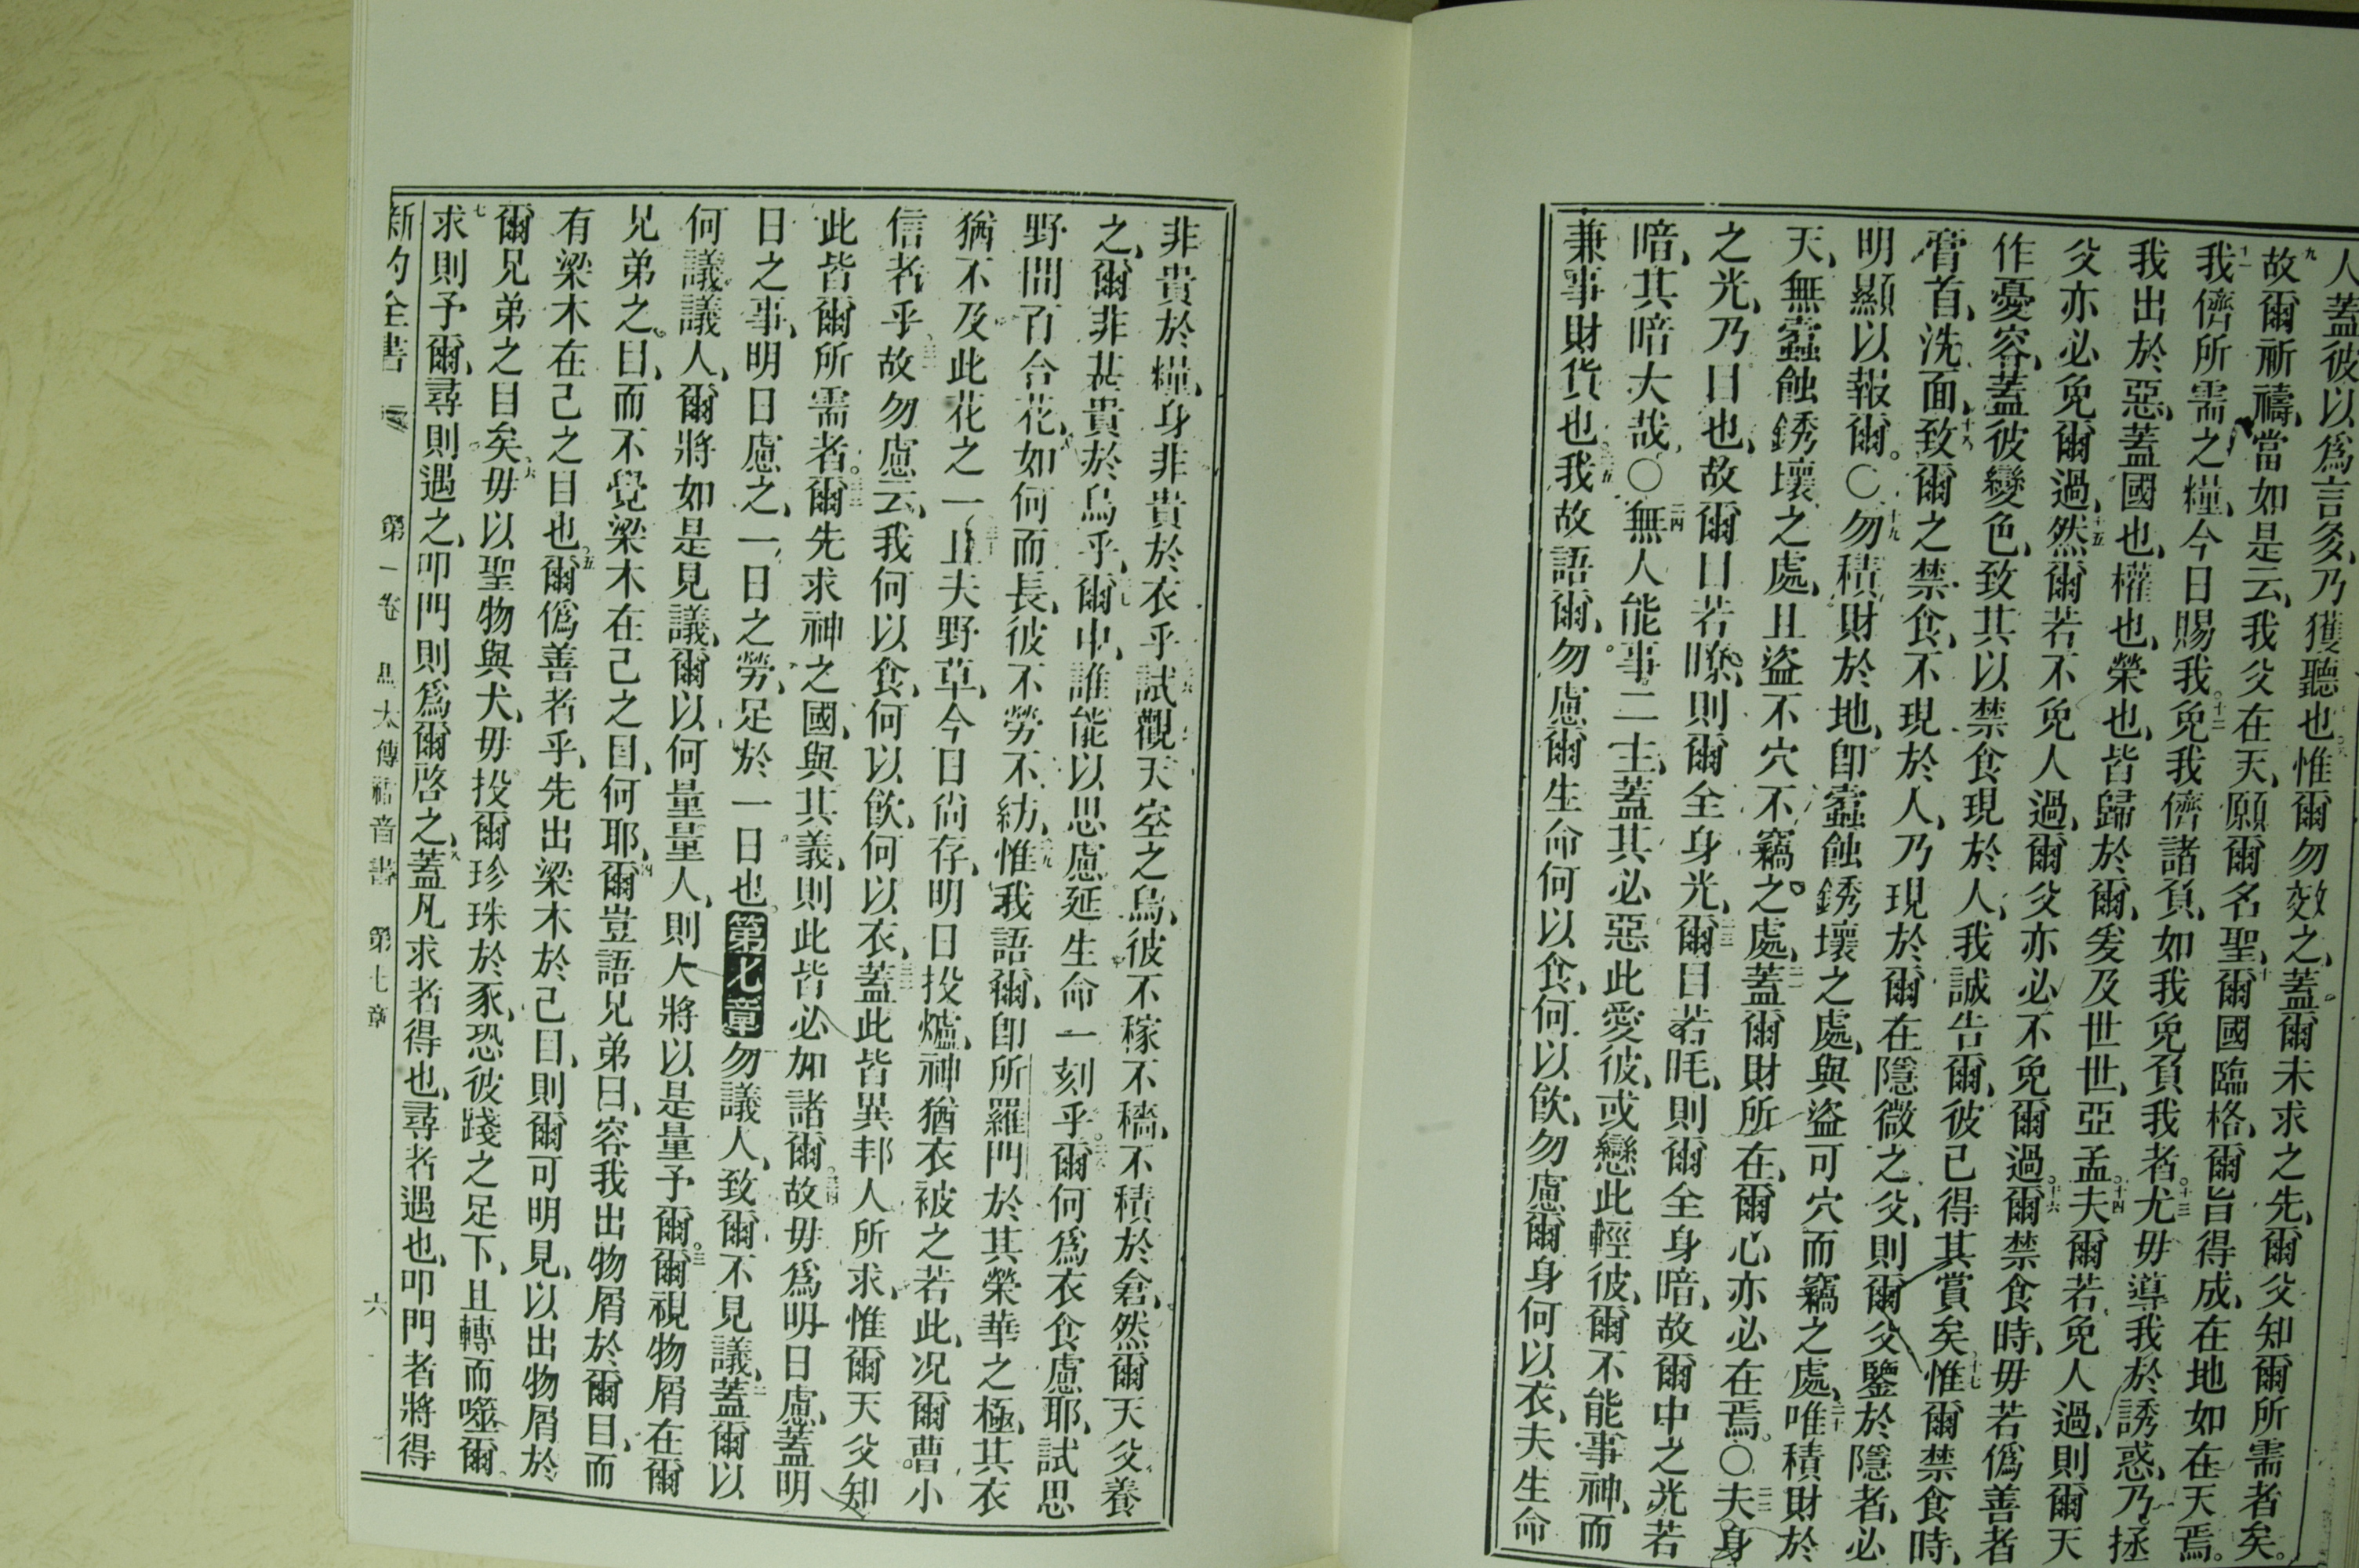 人蓋彼以爲言多、乃獲聽也、惟爾勿效之、蓋爾未求之先、爾父知爾所需者矣。
九故爾祈禱、當如是云、我父在天、願爾名聖、十爾國臨格、爾旨得成、在地如在天焉。
十一我儕所需之糧、今日賜我。十二免我儕諸負、如我免負我者。十三尤毋導我於誘惑、乃拯
我出於惡、蓋國也、權也、榮也、皆歸於爾、爰及世世、亞孟。十四夫爾若免人過、則爾天
父亦必免爾過、十五然爾若不免人過、爾父亦必不免爾過。十六爾禁食時、毋若僞善者
作憂容、蓋彼變色、致其以禁食現於人、我誠告爾、彼已得其賞矣、十七惟爾禁食時、
膏首、洗面、十八致爾之禁食、不現於人、乃現於爾在隱微之父、則爾父鑒於隱者、必
明顯以報爾。〇十九勿積財於地、卽蠧蝕銹壞之處、與盜可穴而竊之處、二十唯積財於
天、無蠧蝕銹壞之處、且盜不穴不竊之處、二一蓋爾財所在、爾心亦必在焉。〇二二夫身
之光、乃目也、故爾目若瞭、則爾全身光、二三爾目若眊、則爾全身暗、故爾中之光若
暗、其暗大哉。〇二四無人能事二主、蓋其必惡此愛彼、或戀此輕彼、爾不能事神、而
兼事財貨也、二五我故語爾、勿慮爾生命何以食、何以飲、勿慮爾身何以衣、夫生命
非貴於糧、身非貴於衣乎、二六試觀天空之鳥、彼不稼不穡、不積於倉、然爾天父養
之、爾非甚貴於鳥乎、二七爾中、誰能以思慮延生命一刻乎。二八爾何爲衣食慮耶、試思
野間百合花、如何而長、彼不勞不紡、二九惟我語爾、卽所羅門於其榮華之極、其衣
猶不及此花之一、三十且夫野草、今日尙存、明日投爐、神猶衣被之若此、况爾曹小
信者乎、三一故勿慮云、我何以食、何以飲、何以衣、三二蓋此皆異邦人所求、惟爾天父知
此皆爾所需者。三三爾先求神之國、與其義、則此皆必加諸爾。三四故毋爲明日慮、蓋明
日之事、明日慮之、一日之勞、足於一日也。第七章勿議人、致爾不見議、二蓋爾以
何議議人、爾將如是見議、爾以何量量人、則人將以是量予爾。三爾視物屑在爾
兄弟之目、而不覺梁木在己之目、何耶、四爾豈語兄弟曰、容我出物屑於爾目、而
有梁木在己之目也。五爾僞善者乎、先出梁木於己目、則爾可明見、以出物屑於
爾兄弟之目矣、六毋以聖物與犬、毋投爾珍珠於豕、恐彼踐之足下、且轉而噬爾。
七求則予爾、尋則遇之、叩門則爲爾啓之、八蓋凡求者得也、尋者遇也、叩門者將得
新約全書 第一卷 馬太傳福音書 第七章 六